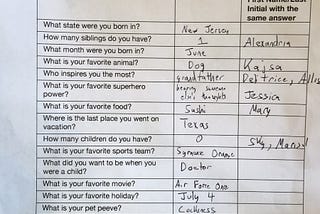 First Name/Last
Initial with the
same answer
What state were you born in? New Jersey
How many siblings do you have? 1 Alexandria
What month were you born in? June
What is your favorite animal? Dog Kajsa
Who inspires you the most? grandfather Detrice,
What is your favorite superhero
power? hearing someone
else's thoughts Jessica
What is your favorite food? Sushi Mary
Where is the last place you went on
vacation? Texas
How many children do you have? 0
What is your favorite sports team? Syracuse Orange
What did you want to be when you
were a child? Doctor
What is your favorite movie? Air Force One
What is your favorite holiday? July 4
What is your pet peeve?